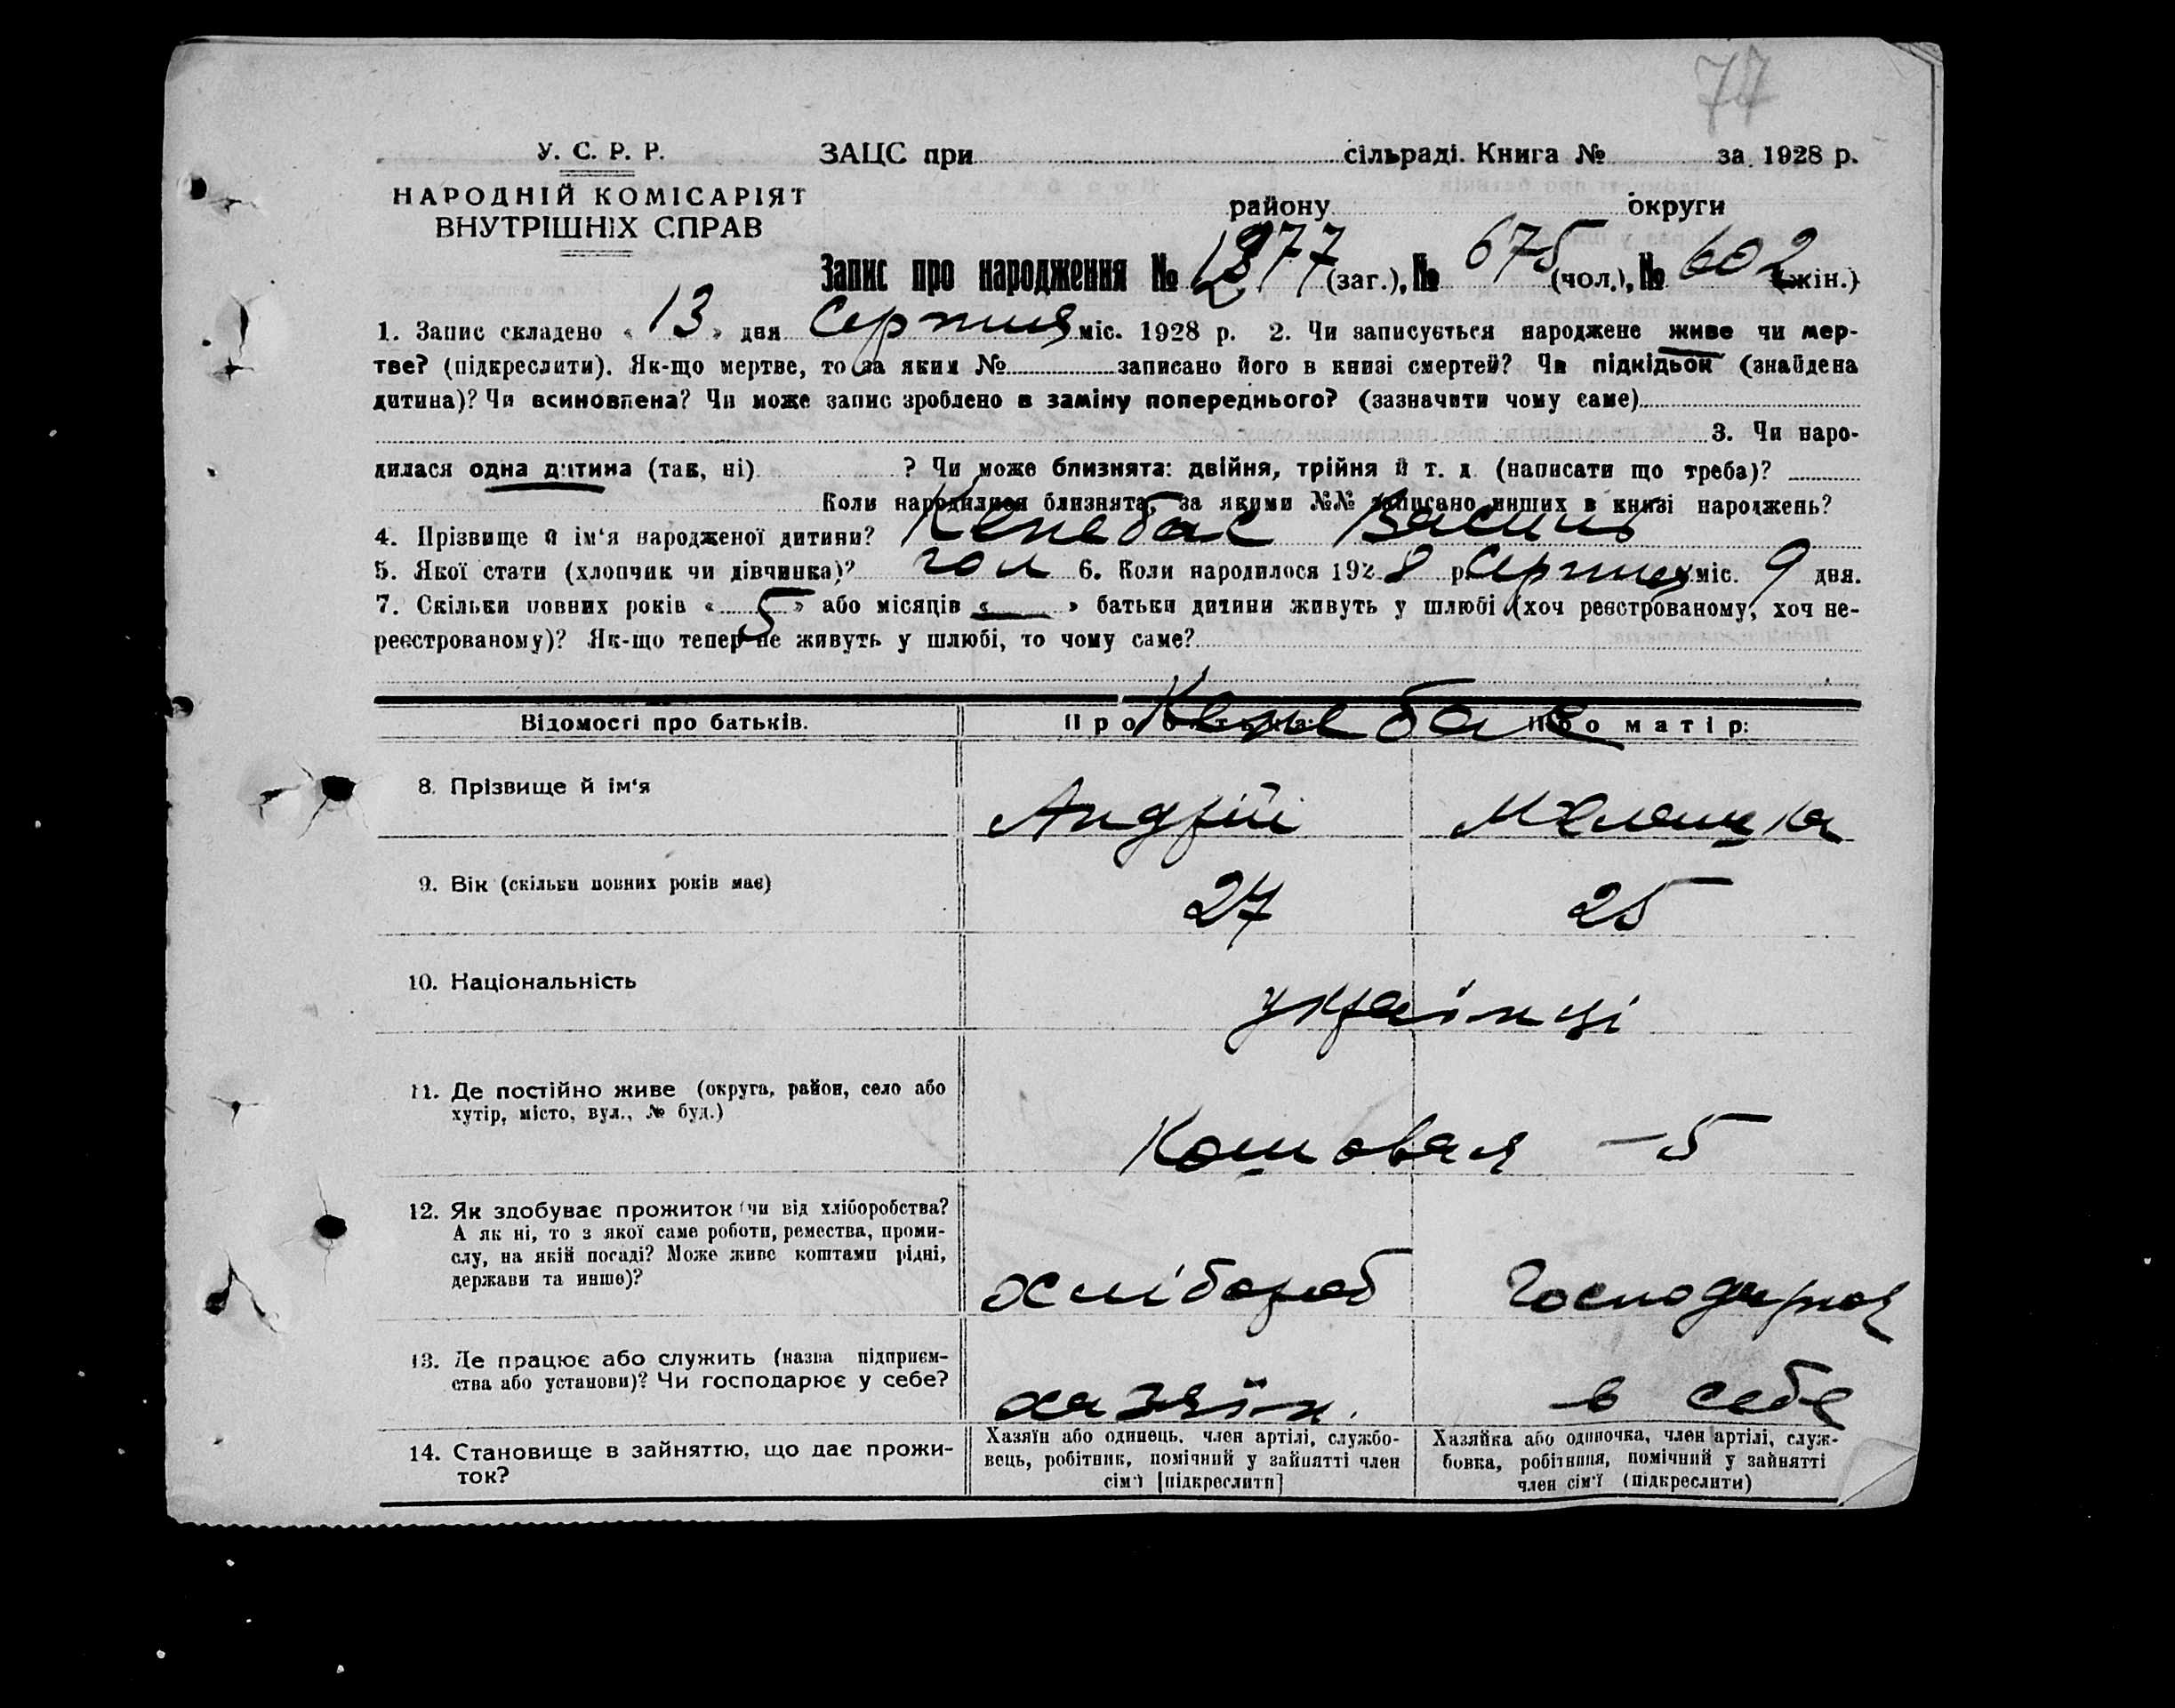 77
У. С. Р. Р.
НАРОДНІЙ КОМІСАРІЯТ
ВНУТРІШНІХ СПРАВ
ЗАЦС при сільраді. Книга № за 1928 р.
району округи
Запис про народження № 1277 (заг.), № 675 (чол.), № 602 (жін.)
1. Запис складено « 13 » дня Серпня міс. 1928 р. 2. Чи записується народжене живе чи мер-
тве? (підкреслити). Як-що мертве, то за яким № записано його в книзі смертей? Чи підкідьок (знайдена
дитина)? Чи всиновлена? Чи може запис зроблено в заміну попереднього? (зазначити чому саме)
3. Чи наро-
дилася одна дитина (так, ні) ? Чи може близнята: двійня, трійня й т. д. (написати що треба)?
Коли народилися близнята, за якими №№ записано инших в книзі народжень?
4. Прізвище й ім'я народженої дитини? Кенебас Василь
5. Якої стати (хлопчик чи дівчинка)? чол 6. Коли народилося 1928 р. Серпня міс. 9 дня.
7. Скільки повних років « 5 » або місяців « — » батьки дитини живуть у шлюбі (хоч реєстрованому, хоч не-
реєстрованому)? Як-що тепер не живуть у шлюбі, то чому саме?
Відомості про батьків. Про батька: Про матір:
Кенебас
8. Прізвище й ім'я Андрій Меланка
9. Вік (скільки повних років має) 27 25
10. Національність українці
11. Де постійно живе (округа, район, село або
хутір, місто, вул., № буд.)
Кошовая – 5
12. Як здобуває прожиток (чи від хліборобства?
А як ні, то з якої саме роботи, ремества, проми-
слу, на якій посаді? Може живе коштами рідні,
держави та инше)?
хлібороб Господарює
13. Де працює або служить (назва підприєм-
ства або установи)? Чи господарює у себе?
хазяїн. в себе
14. Становище в зайняттю, що дає прожи-
ток?
Хазяїн або одинець, член артілі, службо-
вець, робітник, помічний у зайнятті член
сім'ї [підкреслити]
Хазяйка або одиночка, член артілі, служ-
бовка, робітниця, помічний у зайнятті
член сім'ї (підкреслити)